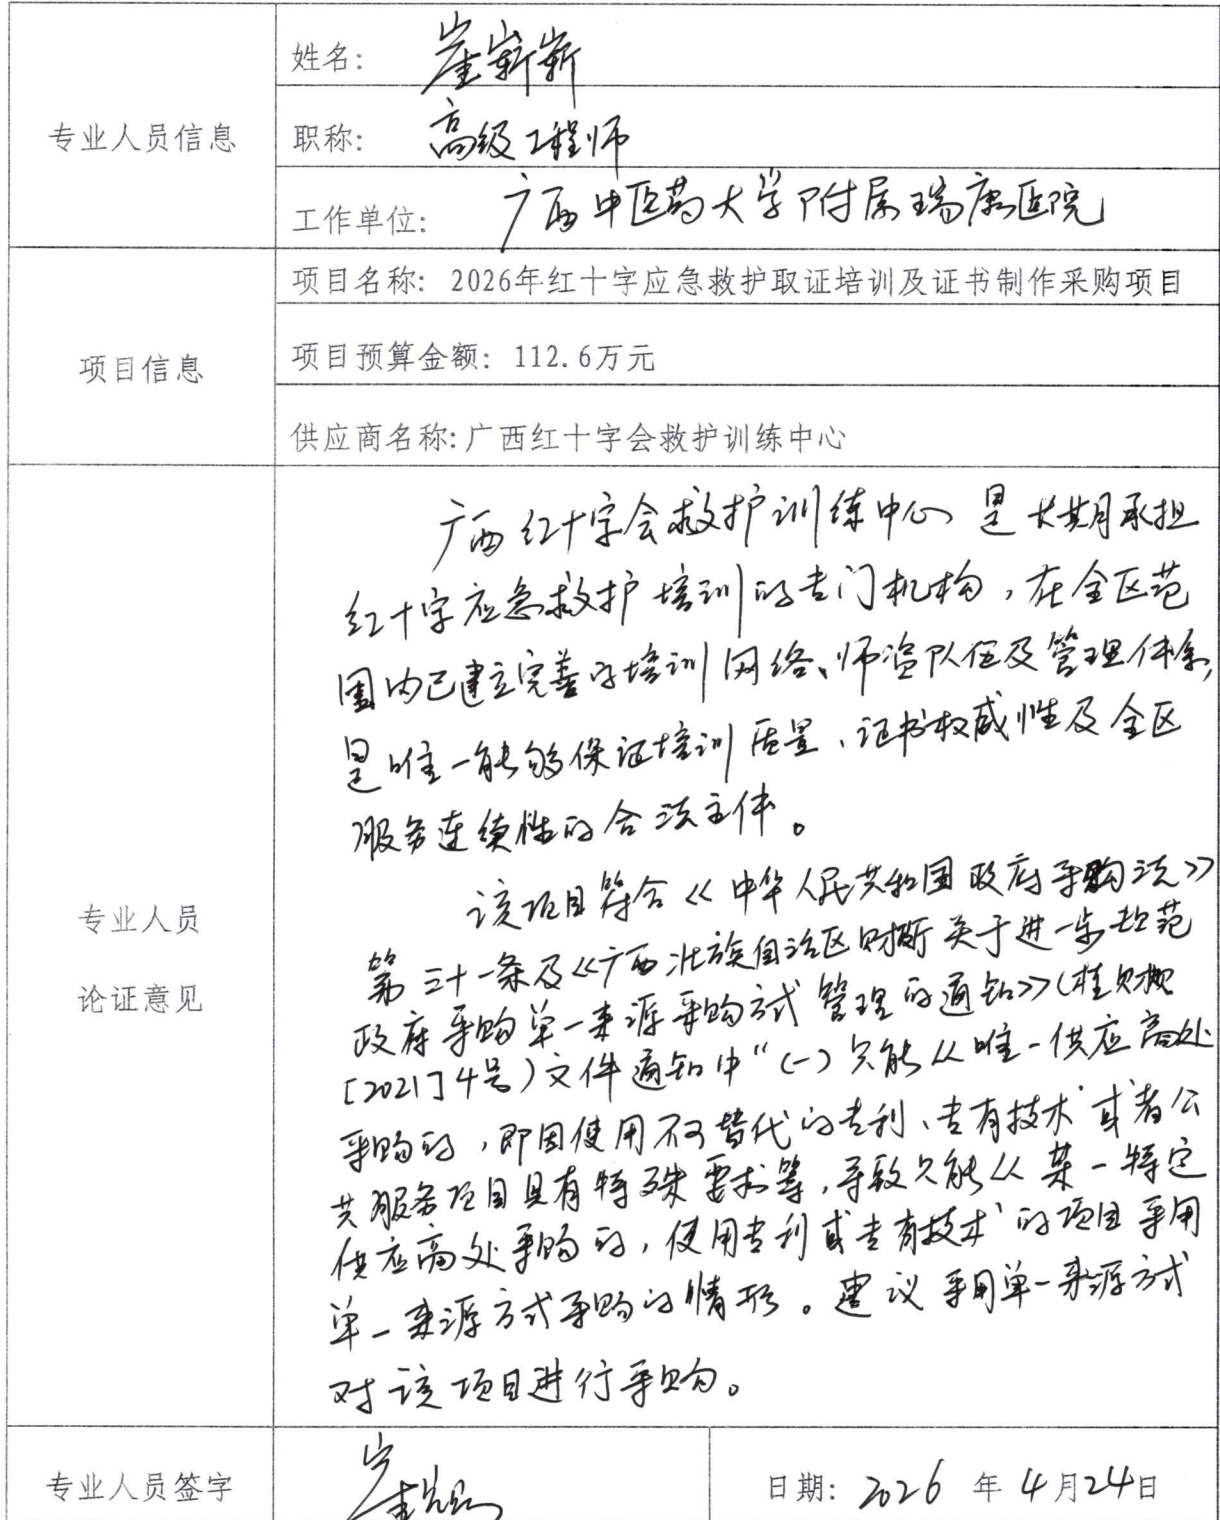 专业人员信息
姓名: 崔崭崭
职称: 高级工程师
工作单位: 广西中医药大学附属瑞康医院
项目信息
项目名称: 2026年红十字应急救护取证培训及证书制作采购项目
项目预算金额: 112.6万元
供应商名称:广西红十字会救护训练中心
专业人员
论证意见
广西红十字会救护训练中心是长期承担
红十字应急救护培训的专门机构,在全区范
围内已建立完善的培训网络、师资队伍及管理体系,
是唯一能够保证培训质量、证书权威性及全区
服务连续性的合法主体。
该项目符合《中华人民共和国政府采购法》
第三十一条及《广西壮族自治区财政厅关于进一步规范
政府采购单一来源采购方式管理的通知》(桂财规
[2021]4号)文件通知中"(一)只能从唯一供应商处
采购的,即因使用不可替代的专利、专有技术或者公
共服务项目具有特殊要求等,导致只能从某一特定
供应商处采购的,使用专利或专有技术的项目采用
单一来源方式采购的情形。建议采用单一来源方式
对该项目进行采购。
专业人员签字
日期: 2026 年 4月24日